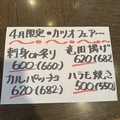 4月限定・カツオフェアー
刺身or炙り
600(660)
竜田揚り
620(682)
カルパッチョ
620(682)
ハラモ焼き
500(550)